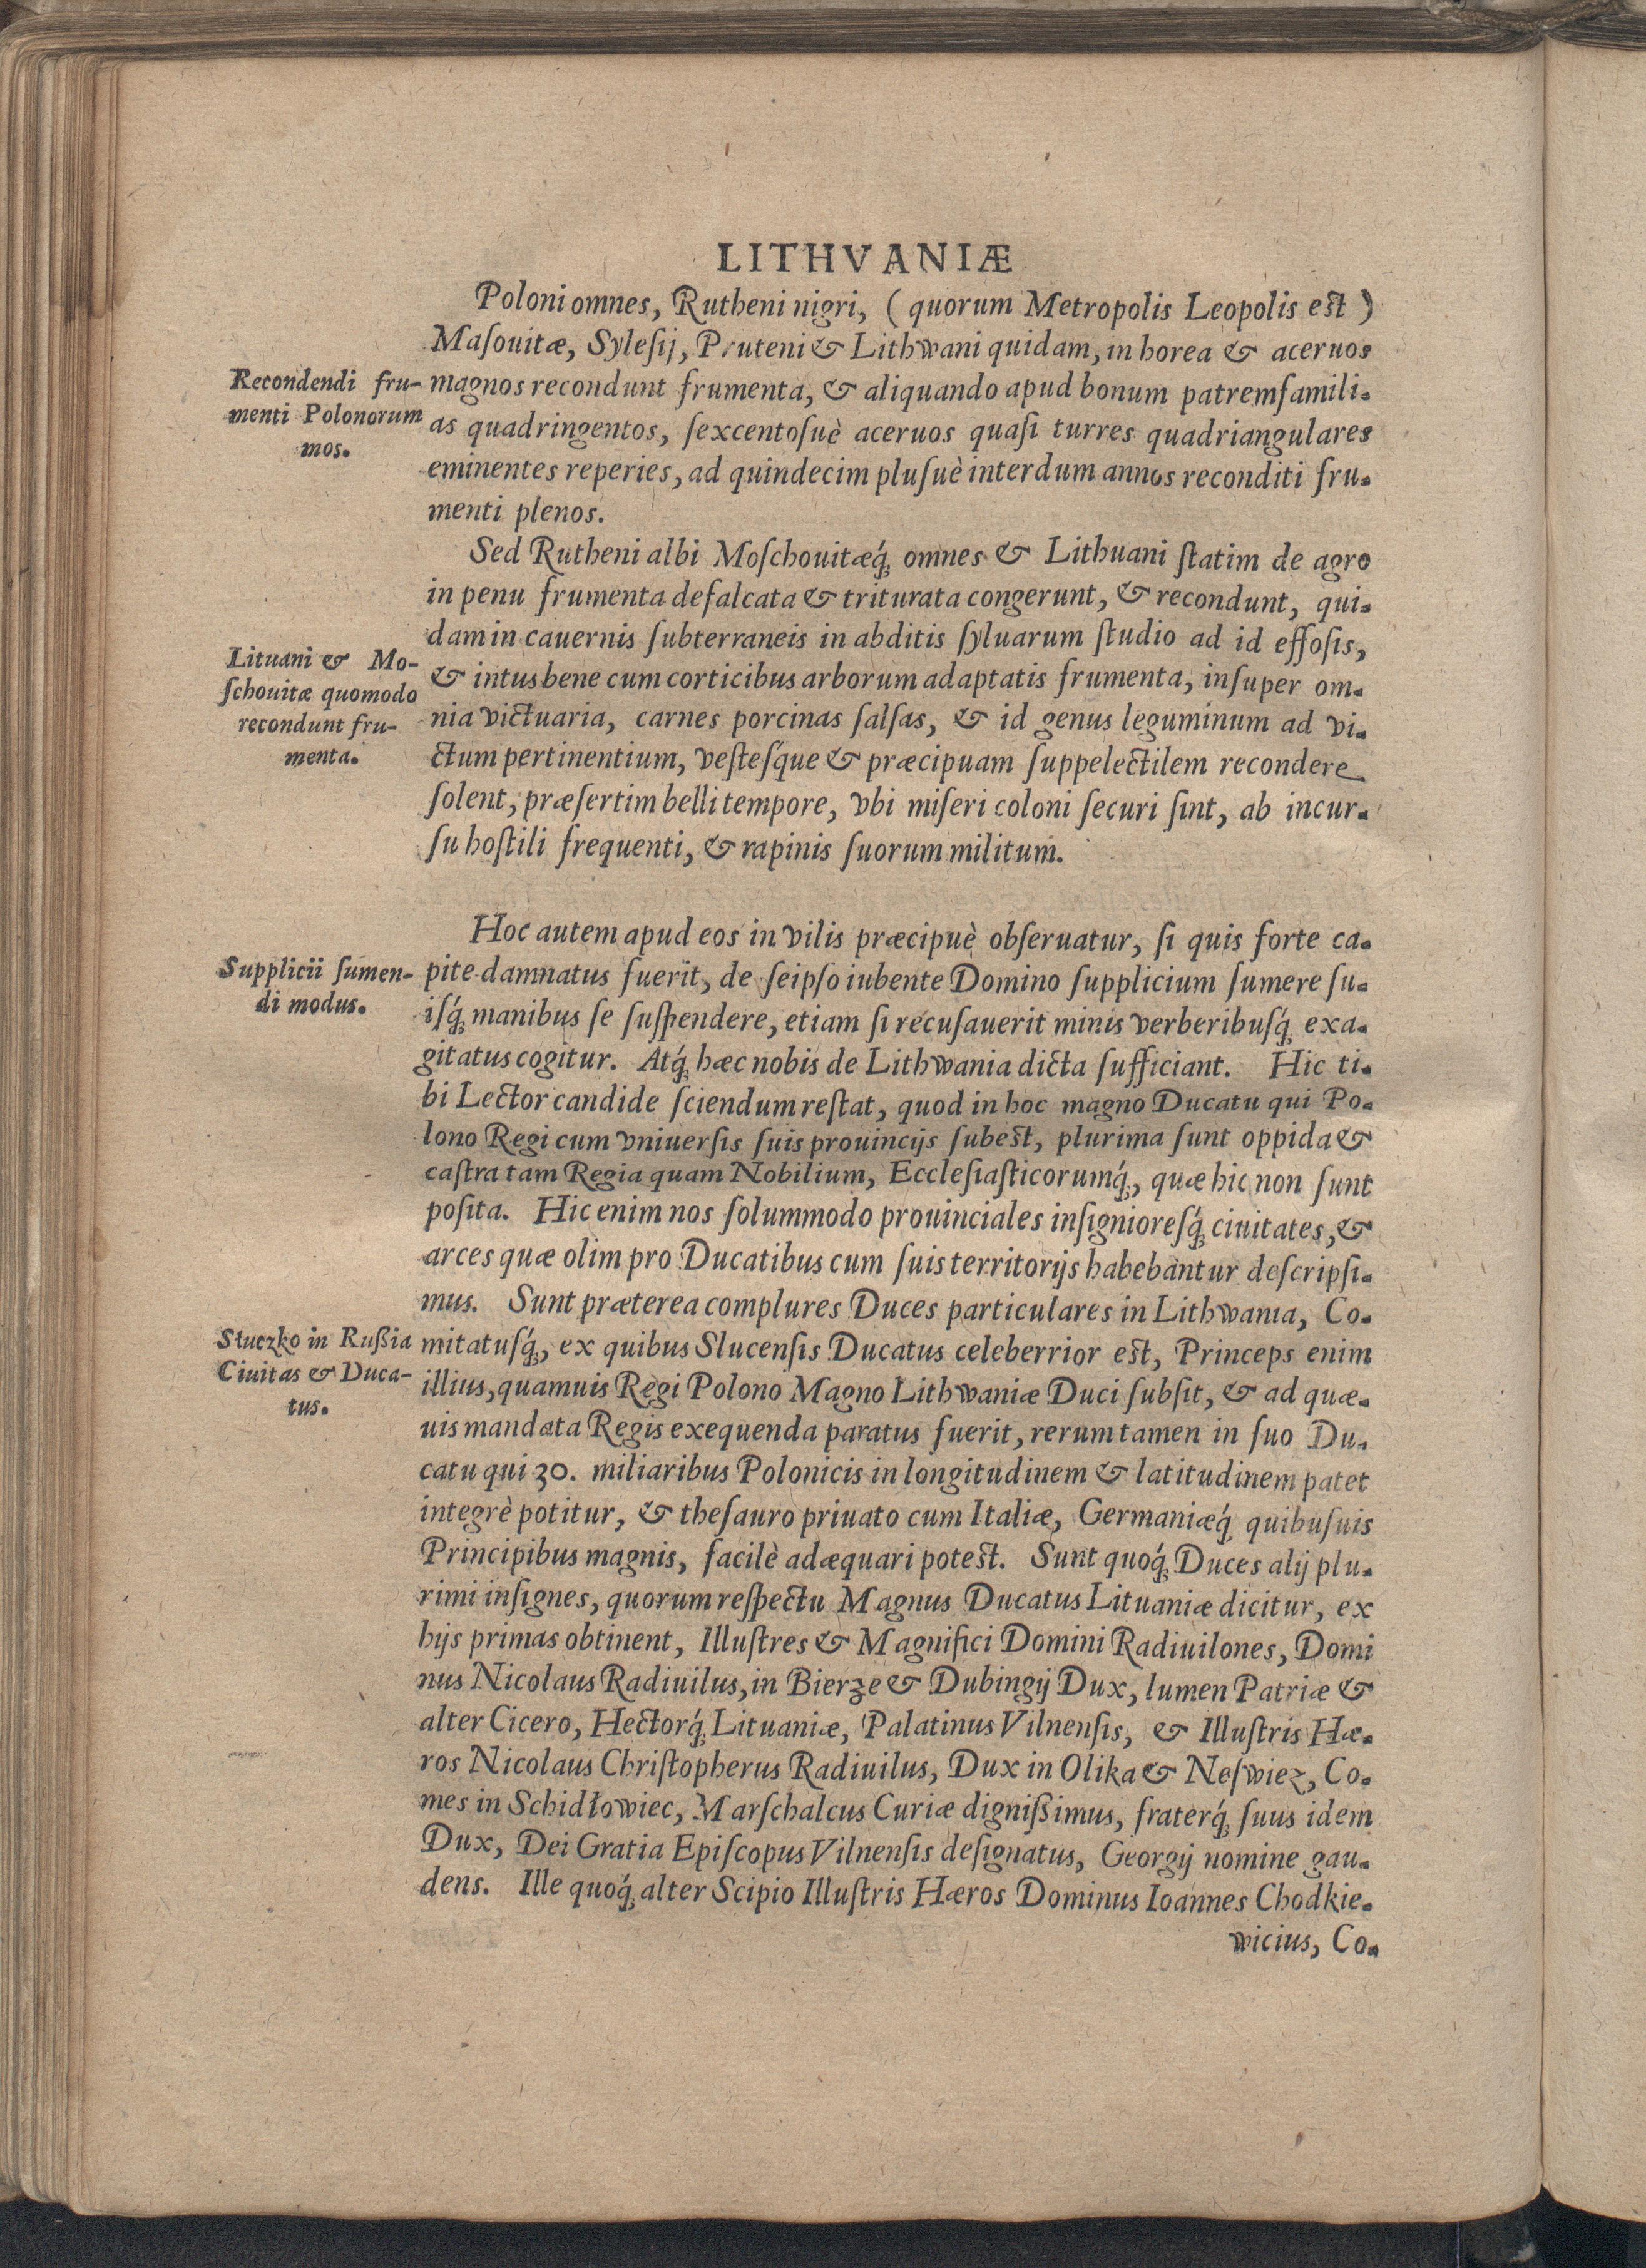 LITHVANIÆ
Poloni omnes, Rutheni nigri, ( quorum Metropolis Leopolis est )
Maſouitæ, Syleſij, Pruteni & Lithwani quidam, in horea & aceruos
Recondendi fru-
menti Polonorum
mos.
magnos recondunt frumenta, & aliquando apud bonum patremfamili-
as quadringentos, ſexcentoſuè aceruos quaſi turres quadriangulares
eminentes reperies, ad quindecim pluſuè interdum annos reconditi fru-
menti plenos.
Sed Rutheni albi Moſchouitæq́; omnes & Lithuani ſtatim de agro
in penu frumenta defalcata & triturata congerunt, & recondunt, qui-
dam in cauernis ſubterraneis in abditis ſyluarum ſtudio ad id effoſis,
Lituani & Mo-
ſchouitæ quomodo
recondunt fru-
menta.
& intus bene cum corticibus arborum adaptatis frumenta, inſuper om-
nia victuaria, carnes porcinas ſalſas, & id genus leguminum ad vi-
ctum pertinentium, veſteſq́ue & præcipuam ſuppelectilem recondere
ſolent, præſertim belli tempore, vbi miſeri coloni ſecuri ſint, ab incur-
ſu hoſtili frequenti, & rapinis ſuorum militum.
Hoc autem apud eos in vilis præcipuè obſeruatur, ſi quis forte ca-
Supplicii ſumen-
di modus.
pite damnatus fuerit, de ſeipſo iubente Domino ſupplicium ſumere ſu-
iſq́; manibus ſe ſuſpendere, etiam ſi recuſauerit minis verberibuſq́; exa-
gitatus cogitur. Atq́; hæc nobis de Lithwania dicta ſufficiant. Hic ti-
bi Lector candide ſciendum reſtat, quod in hoc magno Ducatu qui Po-
lono Regi cum vniuerſis ſuis prouincijs ſubest, plurima ſunt oppida &
caſtra tam Regia quam Nobilium, Eccleſiaſticorumq́;, quæ hic non ſunt
poſita. Hic enim nos ſolummodo prouinciales inſignioreſq́; ciuitates, &
arces quæ olim pro Ducatibus cum ſuis territorijs habebantur deſcripſi-
mus. Sunt præterea complures Duces particulares in Lithwania, Co-
Słuczko in Rußia
Ciuitas & Duca-
tus.
mitatuſq́;, ex quibus Slucenſis Ducatus celeberrior est, Princeps enim
illius, quamuis Regi Polono Magno Lithwaniæ Duci ſubſit, & ad quæ-
uis mandata Regis exequenda paratus fuerit, rerum tamen in ſuo Du-
catu qui 30. miliaribus Polonicis in longitudinem & latitudinem patet
integrè potitur, & theſauro priuato cum Italiæ, Germaniæq́; quibuſuis
Principibus magnis, facilè adæquari potest. Sunt quoq́; Duces alij plu-
rimi inſignes, quorum reſpectu Magnus Ducatus Lituaniæ dicitur, ex
hijs primas obtinent, Illuſtres & Magnifici Domini Radiuilones, Domi
nus Nicolaus Radiuilus, in Bierze & Dubingij Dux, lumen Patriæ &
alter Cicero, Hectorq́; Lituaniæ, Palatinus Vilnenſis, & Illuſtris Hæ-
ros Nicolaus Chriſtopherus Radiuilus, Dux in Olika & Neſwiez, Co-
mes in Schidłowiec, Marſchalcus Curiæ dignißimus, fraterq́; ſuus idem
Dux, Dei Gratia Epiſcopus Vilnenſis deſignatus, Georgij nomine gau-
dens. Ille quoq́; alter Scipio Illuſtris Hæros Dominus Ioannes Chodkie-
wicius, Co-